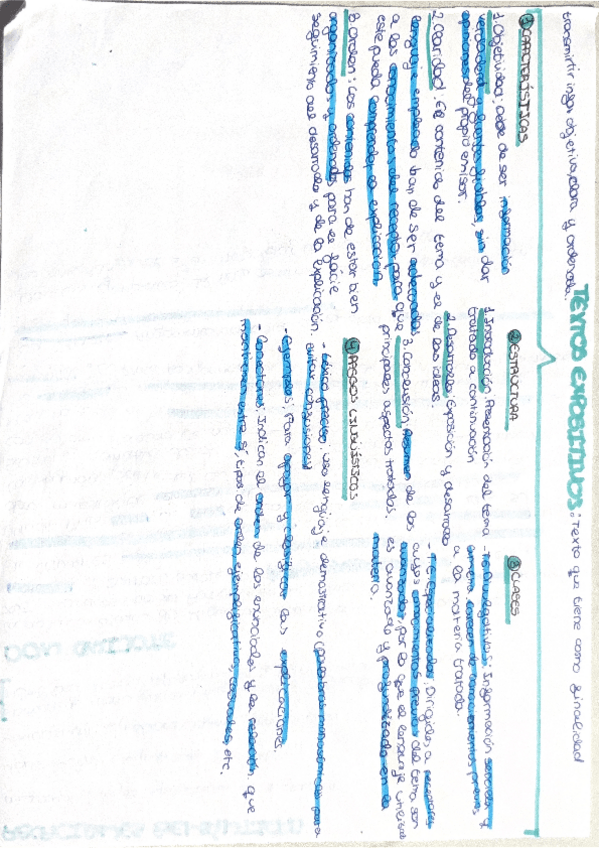 TEXTOS EXPOSITIVOS: Texto que tiene como finalidad
transmitir infon objetiva, clara y ordenada.
① CARACTERÍSTICAS
1. Objetividad: debe de ser información
verdadera y fiable, sin dar
opiniones del propio emisor.
2. Claridad: El contenido del tema y el
lenguaje empleado han de ser adecuados
a los conocimientos del receptor para que
este pueda comprender la explicación.
3. Orden: Los contenidos han de estar bien
organizados y ordenados para el fácil
seguimiento del desarrollo y de la explicación.
② ESTRUCTURA
1. Introducción: Presentación del tema
tratado a continuación
2. Desarrollo: Exposición y desarrollo
de las ideas.
3. Conclusión: Resumen de los
principales aspectos tratados.
③ CLASES
- T.E. Divulgativos: Información sencilla y
carecen de conocimientos previos
a la materia tratada.
- T.E. Especializados: Dirigidos a receptores
cuyos conocimientos previos del tema son
avanzados, por lo que el lenguaje
es avanzado y profundizado en la
materia.
④ RASGOS LINGÜÍSTICOS
- Léxico preciso: Uso lenguaje demostrativo (palabras monosémicas para
evitar confusiones)
- Ejemplos: Para apoyar y clarificar las explicaciones.
- Conectores: Indican el orden de los enunciados y la relación que
mantienen entre sí, tipos de orden, ejemplificativos, causales, etc.